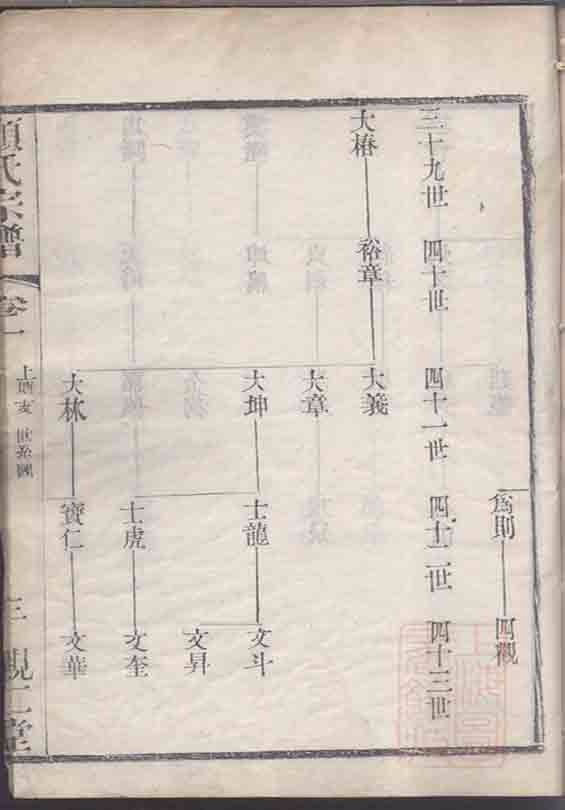 為則 四觀
三十九世 四十世 四十一世 四十二世 四十三世
大椿 裕章 大義
大章
大坤 士龍 文斗
文昇
士虎 文奎
大林 寶仁 文華
氏宗譜 卷一 上 世系圖 三 觀仁堂